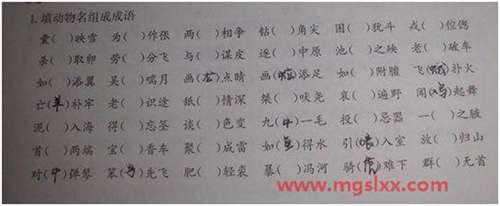 1. 填动物名组成成语
囊( )映雪 为( )作伥 两( )相争 钻( )角尖 困( )犹斗 戎( )倥偬
杀( )取卵 劳( )分飞 与( )谋皮 逐( )中原 池( )之殃 老( )破车
如( )添翼 吴( )喘月 画(龙)点睛 画(蛇)添足 如( )附膻 飞(蛾)扑火
亡(羊)补牢 老( )识途 舐( )情深 桀( )吠尧 哀( )遍野 闻(鸡)起舞
泥( )入海 得( )忘筌 谈( )色变 九(牛)一毛 投( )忌器 一( )之腋
首( )两端 宝( )香车 聚( )成雷 如(鱼)得水 引(狼)入室 放( )归山
对(牛)弹琴 笨(鸟)先飞 肥( )轻裘 暴( )冯河 骑(虎)难下 群( )无首
www.mgslxx.com